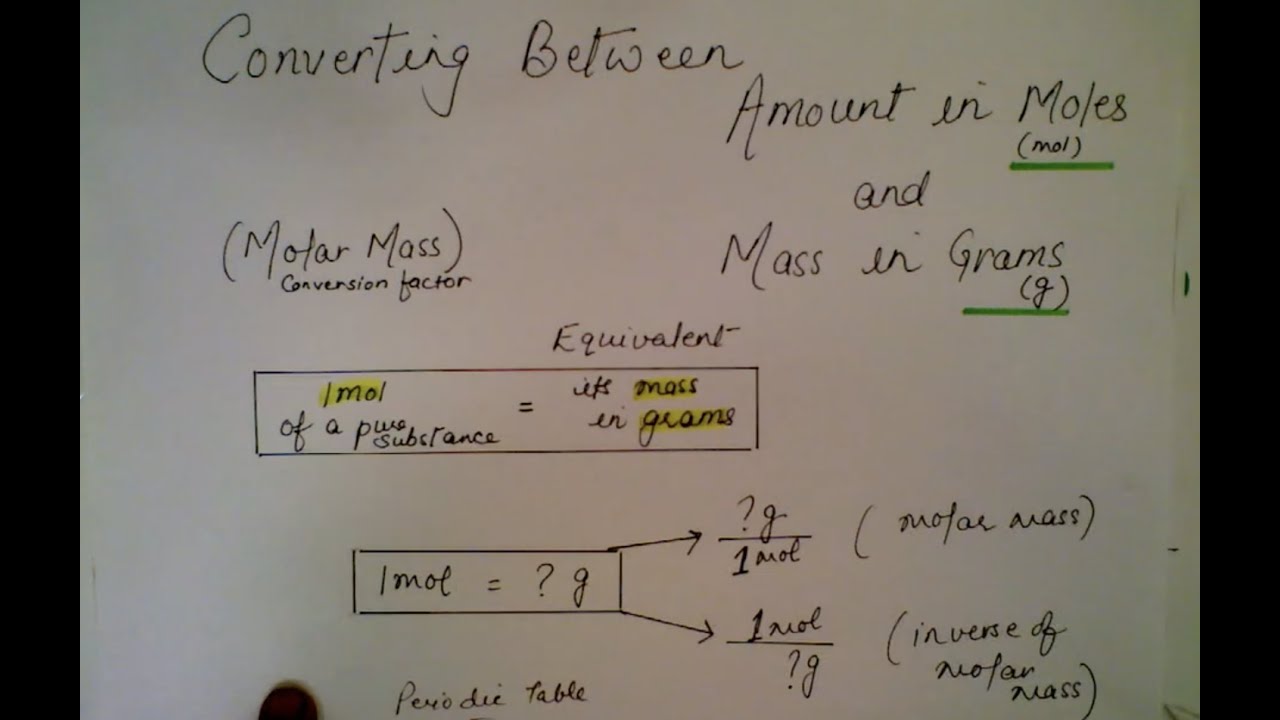 Converting Between
Amount in Moles
(mol)
and
Mass in Grams
(g)
(Molar Mass)
Conversion factor
Equivalent
1mol
of a pure substance
=
its mass
in grams
1mol = ? g
?g
1mol
(molar mass)
1mol
?g
(inverse of
molar
mass)
Periodic Table